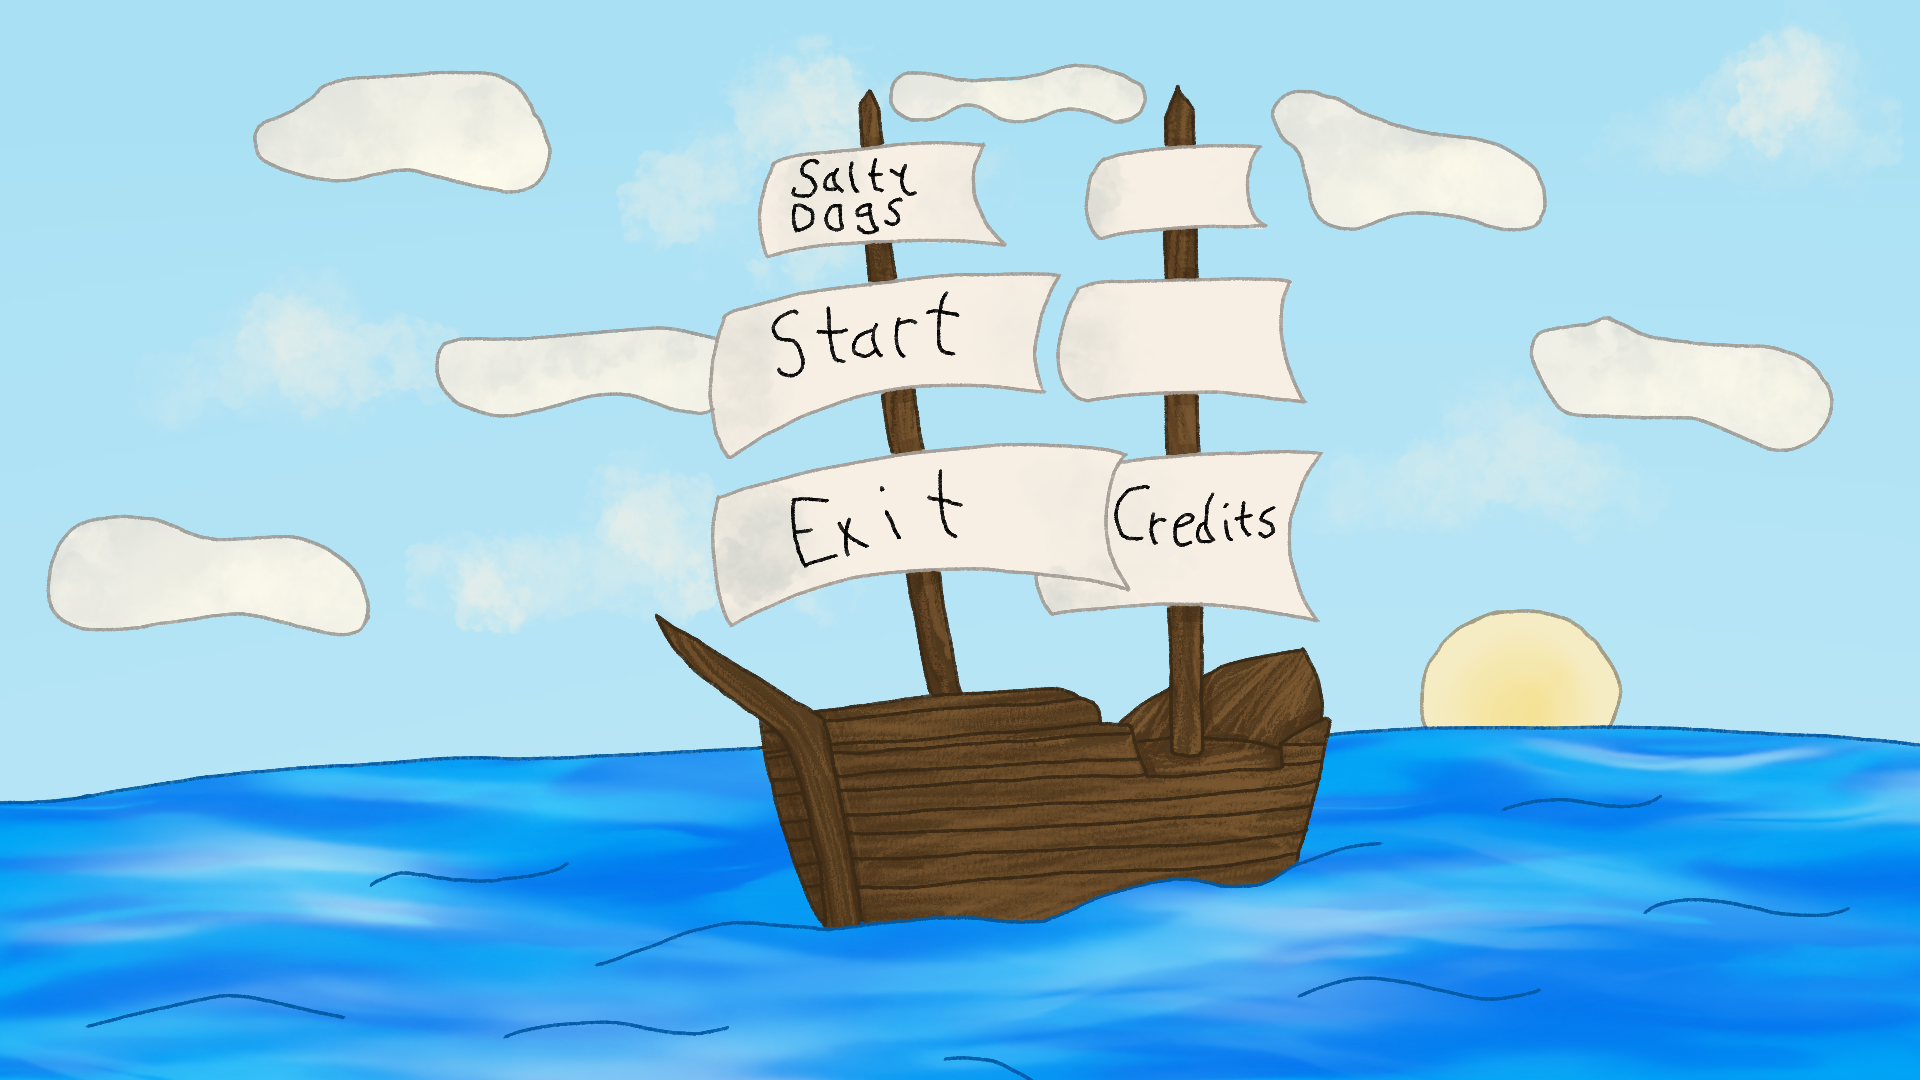 Salty
Dogs
Start
Exit
Credits